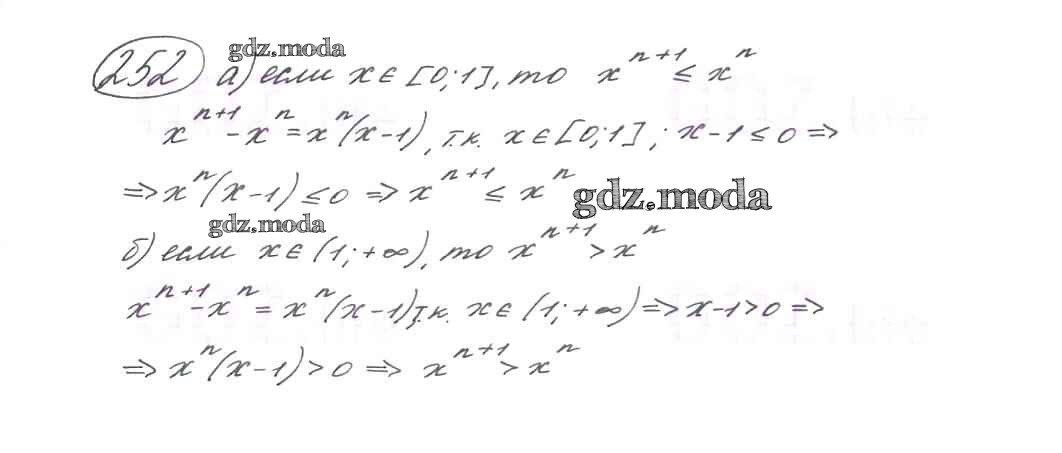 gdz.moda
252 а) если x ∈ [0;1], то x^{n+1} ≤ x^n
x^{n+1} - x^n = x^n(x-1), т.к. x ∈ [0;1]; x-1 ≤ 0 ⇒
⇒ x^n(x-1) ≤ 0 ⇒ x^{n+1} ≤ x^n gdz.moda
gdz.moda
б) если x ∈ (1;+∞), то x^{n+1} > x^n
x^{n+1} - x^n = x^n(x-1) т.к. x ∈ (1;+∞) ⇒ x-1 > 0 ⇒
⇒ x^n(x-1) > 0 ⇒ x^{n+1} > x^n